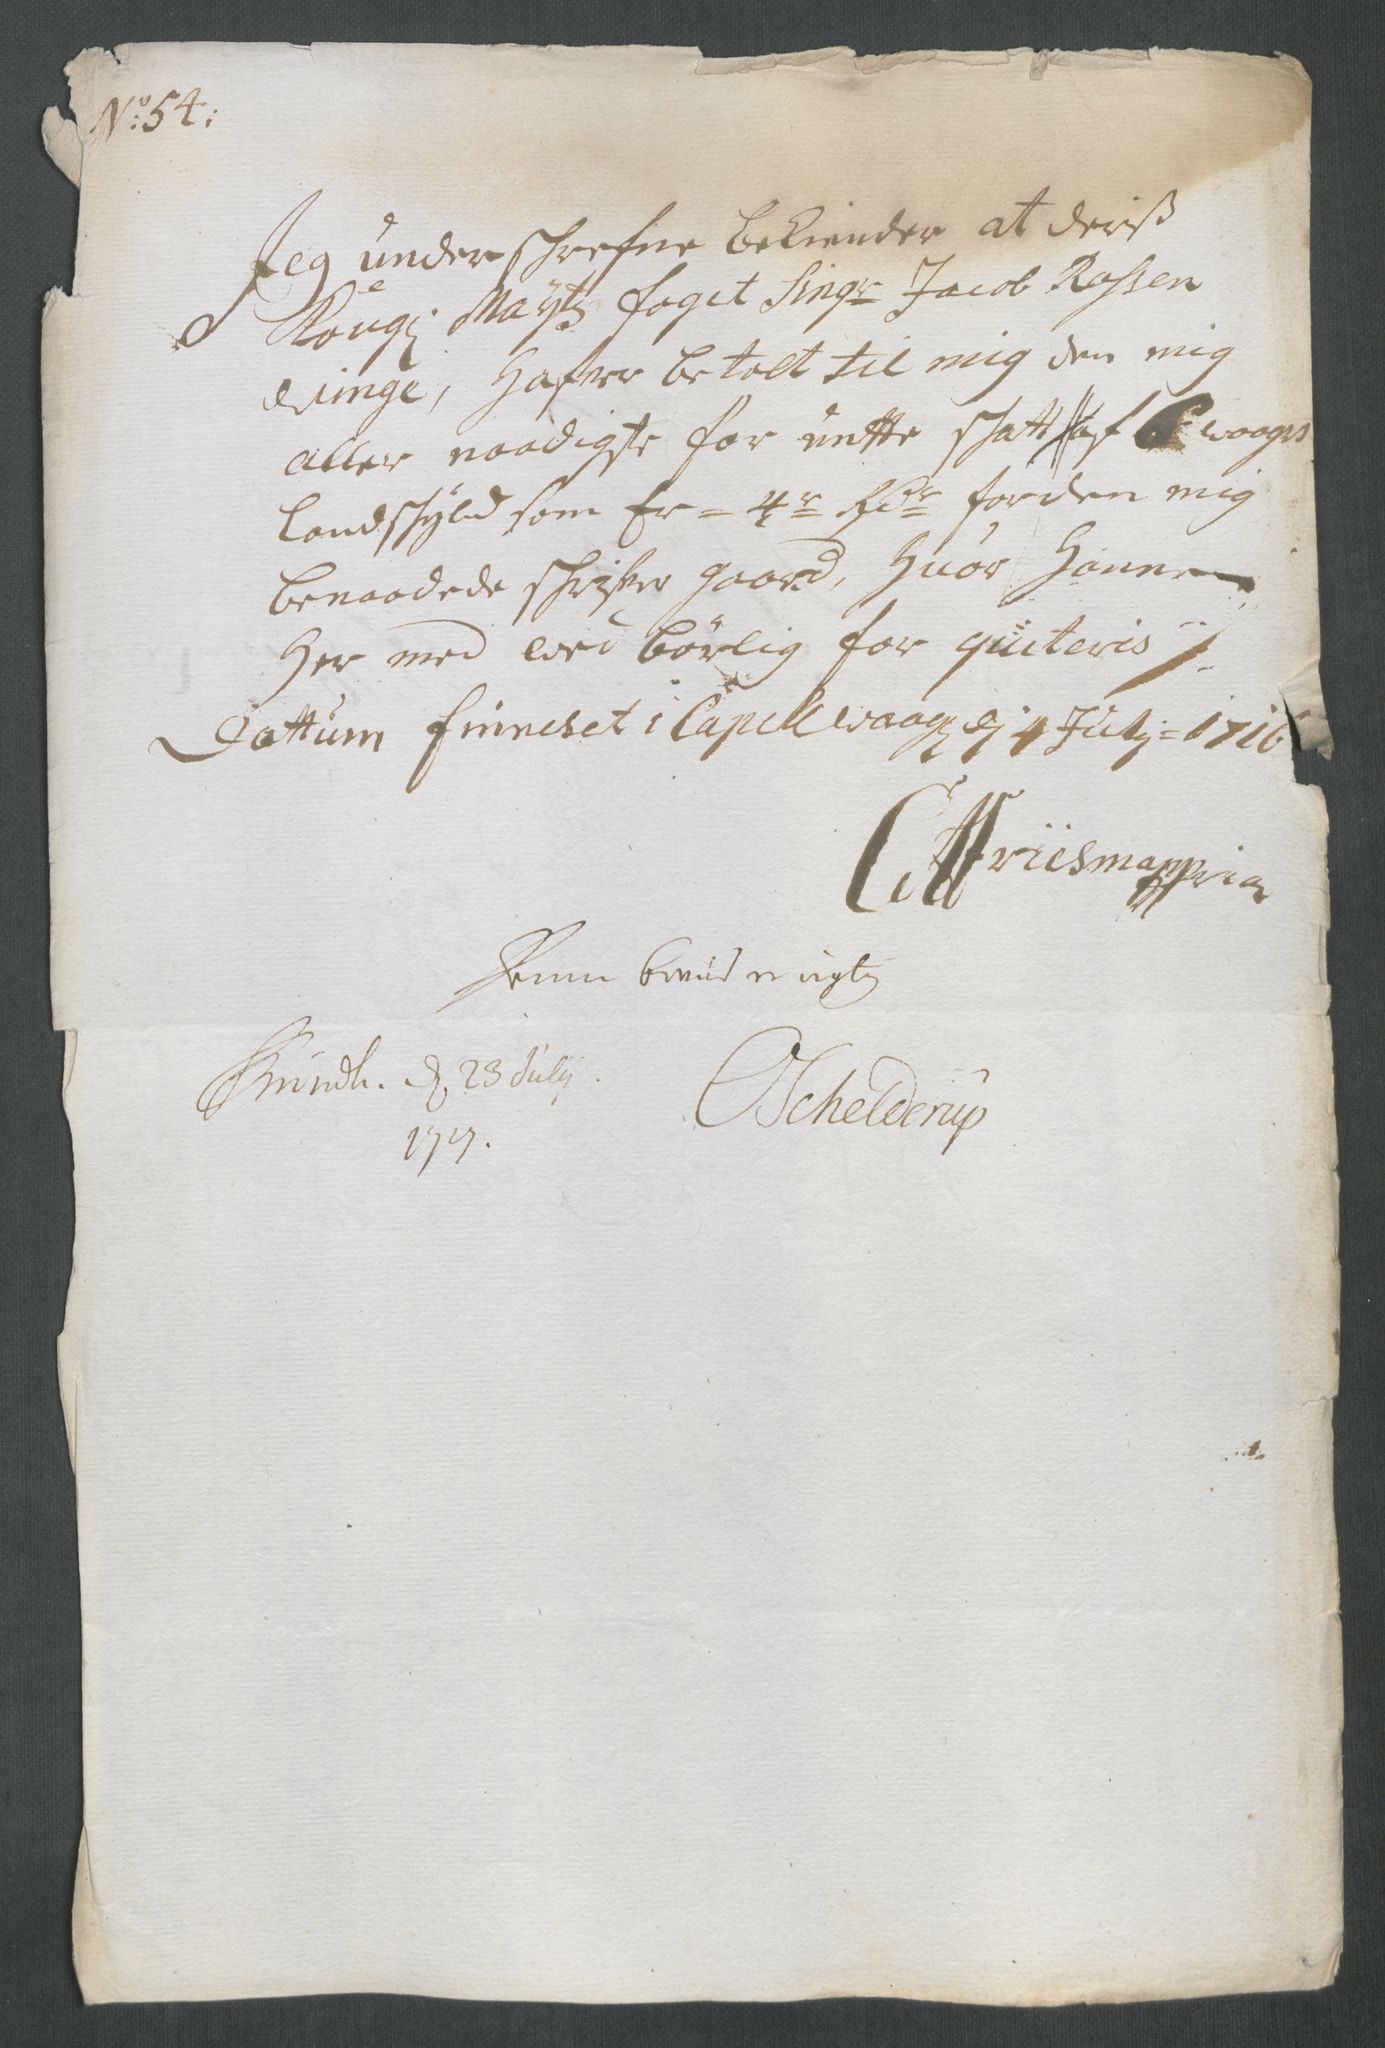 No: 54:
Jeg underschrefne bekiender at deriß
Kongl Maytz foget Singr Jacob Rossen
Winge, hafver betolt til mig den mig
aller naadigste for untte schatt af waagrs
landschyld som Er = 4r Rdr forden mig
benaadede schrifver gaard, huor hannem
her med Wed börlig for quiteris
Dattum finneset i Capellwaag d 4 July = 1716
Friis mappria
Denne beviis er rigtig
Trundh. d. 23 July
1717.
OSchelderup